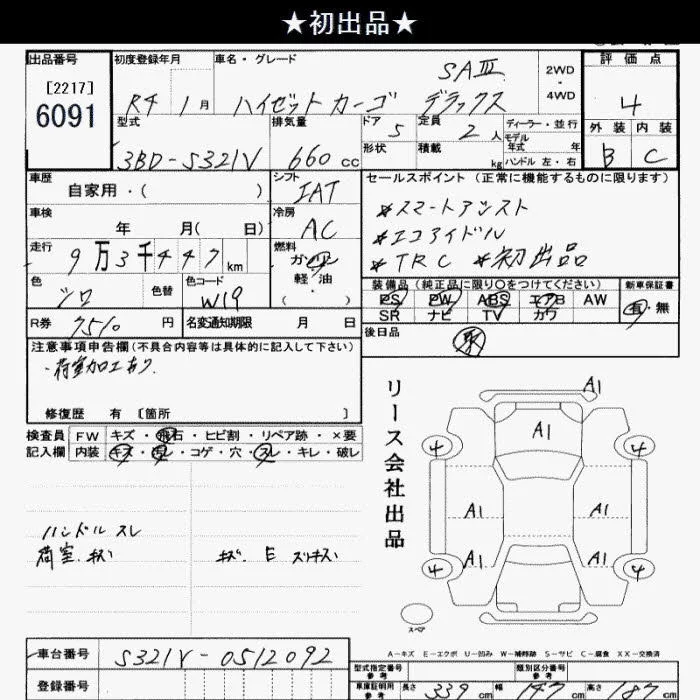 ★初出品★
出品番号
[2217]
6091
初度登録年月
R4 1月
車名・グレード
SAⅢ
ハイゼットカーゴ デラックス
2WD
・
4WD
評価点
4
外装 内装
B C
型式
3BD-S321V
排気量
660 cc
ドア
5
定員
2 人
ディーラー・並行
モデル
年式 年
形状
積載
kg
ハンドル 左・右
車歴
自家用・( )
シフト
IAT
車検
年 月( 日)
冷房
AC
走行
9万3千447 km
燃料
ガソリン
軽油
・( )
色
シロ
色替
色コード
W19
R券 7510 円
名変通知期限 月 日
セールスポイント(正常に機能するものに限ります)
*スマートアシスト
*エコアイドル
*TRC *初出品
装備品(純正品に限り○をつけてください)
新車保証書
PS PW ABS エアB AW
SR ナビ TV カワ
有・無
後日品
注意事項申告欄(不具合内容等は具体的に記入して下さい)
・荷室加工あり
修復歴 有 〔箇所 〕
検査員
記入欄
FW キズ・飛石・ヒビ割・リペア跡・×要
内装 キズ・汚レ・コゲ・穴・スレ・キレ・破レ
ハンドル スレ
荷室.キズ
キズ.E スリキズ
リース会社出品
A1
A1
4 4
A1 A1
A1 A1
4 4
スペア
A-キズ E-エクボ U-凹み W-補修跡 S-サビ C-腐食 XX-交換済
車台番号 S321V-0512092
登録番号
型式指定番号
参考
類別区分番号
参考
車庫証明用
参考
長さ 339 cm 幅 147 cm 高さ 187 cm